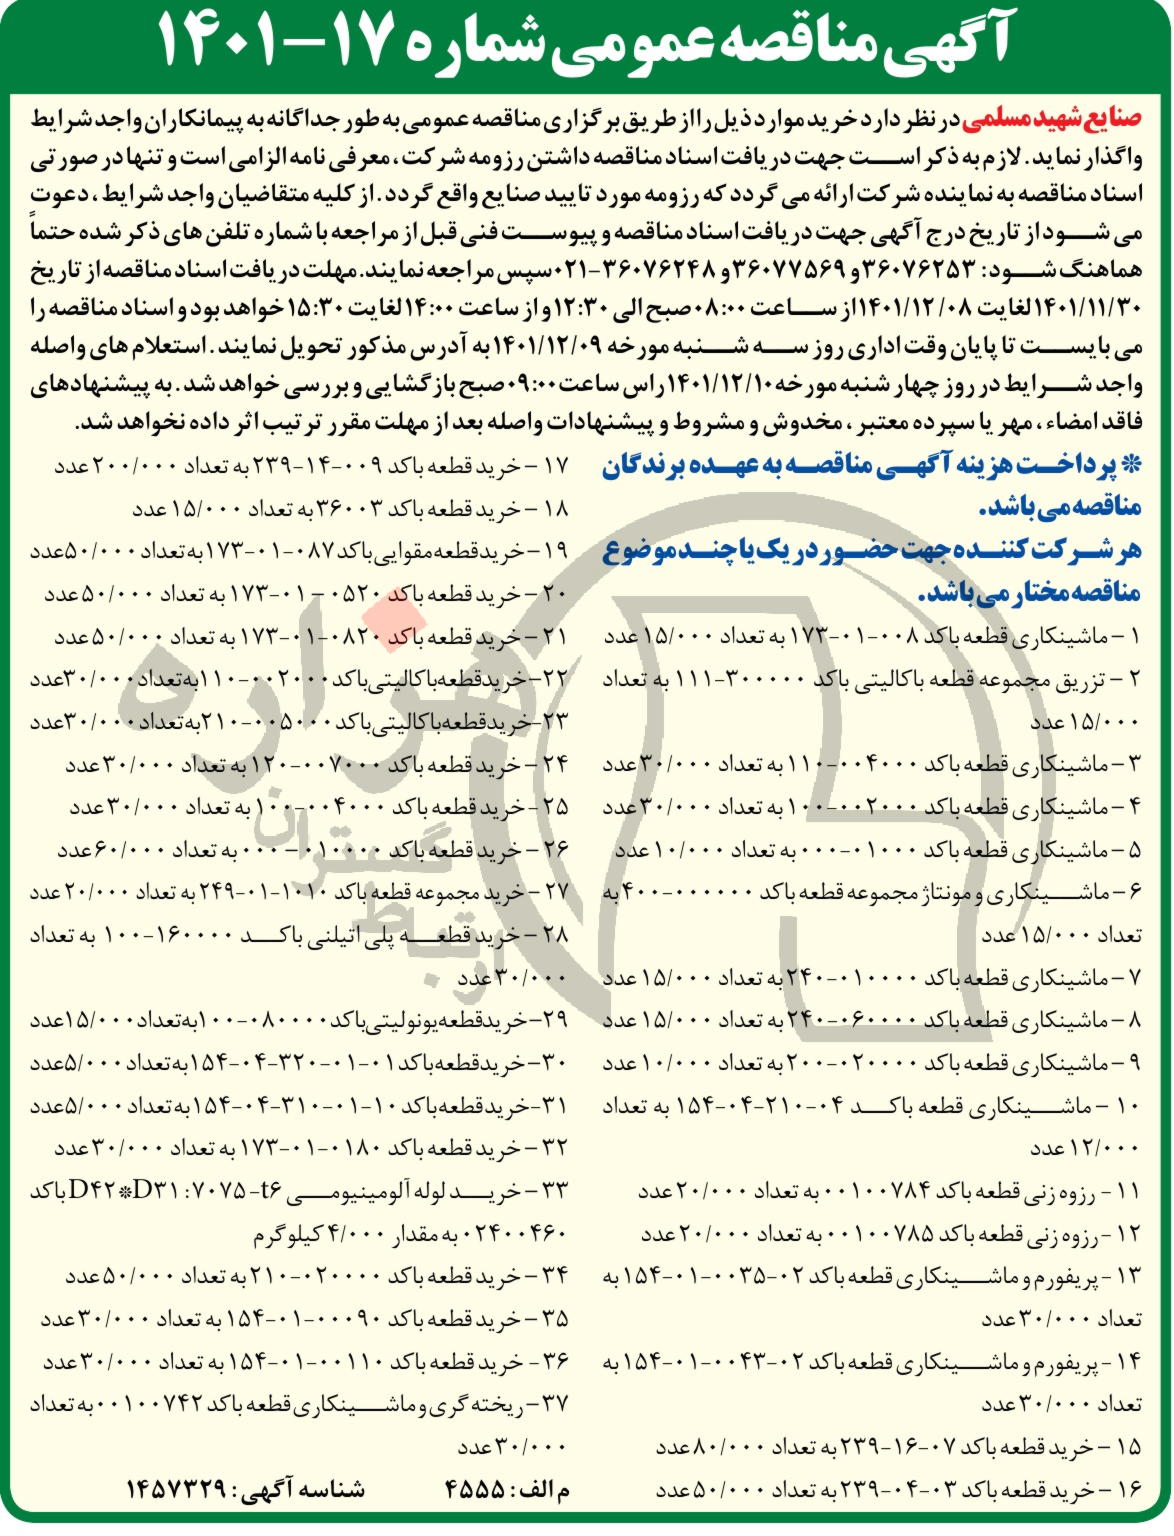 آگهی مناقصه عمومی شماره ۱۷-۱۴۰۱
صنایع شهید مسلمی در نظر دارد خرید موارد ذیل را از طریق برگزاری مناقصه عمومی به طور جداگانه به پیمانکاران واجد شرایط
واگذار نماید. لازم به ذکر است جهت دریافت اسناد مناقصه داشتن رزومه شرکت، معرفی نامه الزامی است و تنها در صورتی
اسناد مناقصه به نماینده شرکت ارائه می گردد که رزومه مورد تایید صنایع واقع گردد. از کلیه متقاضیان واجد شرایط، دعوت
می شود از تاریخ درج آگهی جهت دریافت اسناد مناقصه و پیوست فنی قبل از مراجعه با شماره تلفن های ذکر شده حتماً
هماهنگ شود: ۳۶۰۷۶۲۵۳ و ۳۶۰۷۷۵۶۹ و ۳۶۰۷۶۲۴۸-۰۲۱ سپس مراجعه نمایند. مهلت دریافت اسناد مناقصه از تاریخ
۱۴۰۱/۱۱/۳۰ لغایت ۱۴۰۱/۱۲/۰۸ از ساعت ۰۸:۰۰ صبح الی ۱۲:۳۰ و از ساعت ۱۴:۰۰ لغایت ۱۵:۳۰ خواهد بود و اسناد مناقصه را
می بایست تا پایان وقت اداری روز سه شنبه مورخه ۱۴۰۱/۱۲/۰۹ به آدرس مذکور تحویل نمایند. استعلام های واصله
واجد شرایط در روز چهار شنبه مورخه ۱۴۰۱/۱۲/۱۰ راس ساعت ۰۹:۰۰ صبح بازگشایی و بررسی خواهد شد. به پیشنهادهای
فاقد امضاء، مهر یا سپرده معتبر، مخدوش و مشروط و پیشنهادات واصله بعد از مهلت مقرر ترتیب اثر داده نخواهد شد.
* پرداخت هزینه آگهی مناقصه به عهده برندگان
مناقصه می باشد.
هر شرکت کننده جهت حضور در یک یا چند موضوع
مناقصه مختار می باشد.
۱- ماشینکاری قطعه باکد ۰۰۸-۰۱-۱۷۳ به تعداد ۱۵/۰۰۰ عدد
۲- تزریق مجموعه قطعه باکالیتی باکد ۳۰۰۰۰۰-۱۱۱ به تعداد
۱۵/۰۰۰ عدد
۳- ماشینکاری قطعه باکد ۰۰۴۰۰۰-۱۱۰ به تعداد ۳۰/۰۰۰ عدد
۴- ماشینکاری قطعه باکد ۰۰۲۰۰۰-۱۰۰ به تعداد ۳۰/۰۰۰ عدد
۵- ماشینکاری قطعه باکد ۰۱۰۰۰-۰۰۰ به تعداد ۱۰/۰۰۰ عدد
۶- ماشینکاری و مونتاژ مجموعه قطعه باکد ۰۰۰۰۰۰-۴۰۰ به
تعداد ۱۵/۰۰۰ عدد
۷- ماشینکاری قطعه باکد ۰۱۰۰۰۰-۲۴۰ به تعداد ۱۵/۰۰۰ عدد
۸- ماشینکاری قطعه باکد ۰۶۰۰۰۰-۲۴۰ به تعداد ۱۵/۰۰۰ عدد
۹- ماشینکاری قطعه باکد ۰۲۰۰۰۰-۲۰۰ به تعداد ۱۰/۰۰۰ عدد
۱۰- ماشینکاری قطعه باکد ۰۴-۲۱۰-۰۴-۱۵۴ به تعداد
۱۲/۰۰۰ عدد
۱۱- رزوه زنی قطعه باکد ۰۰۱۰۰۷۸۴ به تعداد ۲۰/۰۰۰ عدد
۱۲- رزوه زنی قطعه باکد ۰۰۱۰۰۷۸۵ به تعداد ۲۰/۰۰۰ عدد
۱۳- پریفورم و ماشینکاری قطعه باکد ۰۲-۰۰۳۵-۰۱-۱۵۴ به
تعداد ۳۰/۰۰۰ عدد
۱۴- پریفورم و ماشینکاری قطعه باکد ۰۲-۰۰۴۳-۰۱-۱۵۴ به
تعداد ۳۰/۰۰۰ عدد
۱۵- خرید قطعه باکد ۰۷-۱۶-۲۳۹ به تعداد ۸۰/۰۰۰ عدد
۱۶- خرید قطعه باکد ۰۳-۰۴-۲۳۹ به تعداد ۵۰/۰۰۰ عدد
۱۷- خرید قطعه باکد ۰۰۹-۱۴-۲۳۹ به تعداد ۲۰۰/۰۰۰ عدد
۱۸- خرید قطعه باکد ۳۶۰۰۳ به تعداد ۱۵/۰۰۰ عدد
۱۹- خرید قطعه مقوایی باکد ۰۸۷-۰۱-۱۷۳ به تعداد ۵۰/۰۰۰ عدد
۲۰- خرید قطعه باکد ۰۵۲۰-۰۱-۱۷۳ به تعداد ۵۰/۰۰۰ عدد
۲۱- خرید قطعه باکد ۰۸۲۰-۰۱-۱۷۳ به تعداد ۵۰/۰۰۰ عدد
۲۲- خرید قطعه باکالیتی باکد ۰۰۲۰۰۰-۱۱۰ به تعداد ۳۰/۰۰۰ عدد
۲۳- خرید قطعه باکالیتی باکد ۰۰۵۰۰۰-۲۱۰ به تعداد ۳۰/۰۰۰ عدد
۲۴- خرید قطعه باکد ۰۰۷۰۰۰-۱۲۰ به تعداد ۳۰/۰۰۰ عدد
۲۵- خرید قطعه باکد ۰۰۴۰۰۰-۱۰۰ به تعداد ۳۰/۰۰۰ عدد
۲۶- خرید قطعه باکد ۰۱۰۰۰۰-۰۰۰ به تعداد ۶۰/۰۰۰ عدد
۲۷- خرید مجموعه قطعه باکد ۱۰۱۰-۰۱-۲۴۹ به تعداد ۲۰/۰۰۰ عدد
۲۸- خرید قطعه پلی اتیلنی باکد ۱۶۰۰۰۰-۱۰۰ به تعداد
۳۰/۰۰۰ عدد
۲۹- خرید قطعه یونولیتی باکد ۰۸۰۰۰۰-۱۰۰ به تعداد ۱۵/۰۰۰ عدد
۳۰- خرید قطعه باکد ۰۱-۰۱-۳۲۰-۰۴-۱۵۴ به تعداد ۵/۰۰۰ عدد
۳۱- خرید قطعه باکد ۱۰-۰۱-۳۱۰-۰۴-۱۵۴ به تعداد ۵/۰۰۰ عدد
۳۲- خرید قطعه باکد ۰۱۸۰-۰۱-۱۷۳ به تعداد ۳۰/۰۰۰ عدد
۳۳- خرید لوله آلومینیومی D۴۲*D۳۱:۷۰۷۵-t۶ باکد
۰۲۴۰۰۴۶۰ به مقدار ۴/۰۰۰ کیلوگرم
۳۴- خرید قطعه باکد ۰۲۰۰۰۰-۲۱۰ به تعداد ۵۰/۰۰۰ عدد
۳۵- خرید قطعه باکد ۰۰۰۹۰-۰۱-۱۵۴ به تعداد ۳۰/۰۰۰ عدد
۳۶- خرید قطعه باکد ۰۰۱۱۰-۰۱-۱۵۴ به تعداد ۳۰/۰۰۰ عدد
۳۷- ریخته گری و ماشینکاری قطعه باکد ۰۰۱۰۰۷۴۲ به تعداد
۳۰/۰۰۰ عدد
م الف: ۴۵۵۵ شناسه آگهی: ۱۴۵۷۳۲۹
هزاره
ارتباط گستران